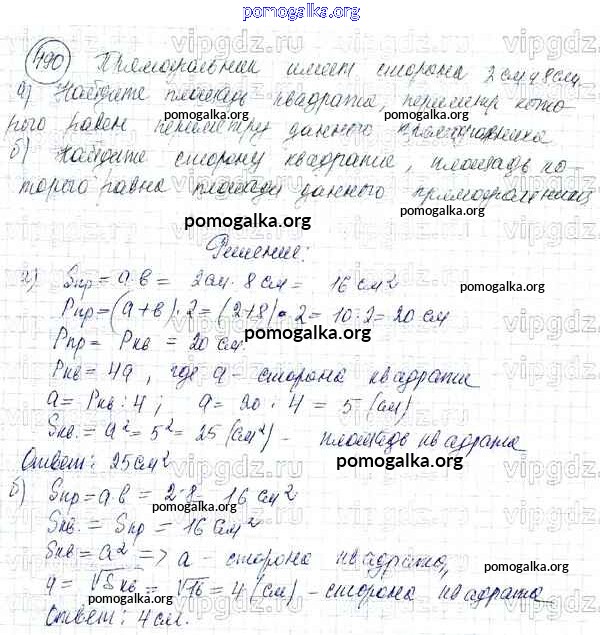 pomogalka.org
490 Прямоугольник имеет стороны 2 см и 8 см.
а) Найдите площадь квадрата, периметр кото-
рого равен периметру данного прямоугольника
б) Найдите сторону квадрата, площадь ко-
торого равна площади данного прямоугольника
Решение:
а) Sпр = a·в = 2см · 8см = 16 см²
Pпр = (a+в)·2 = (2+8)·2 = 10·2 = 20 см
Pпр = Pкв = 20 см
Pкв = 4a, где a - сторона квадрата
a = Pкв : 4; a = 20 : 4 = 5 (см)
Sкв. = a² = 5² = 25 (см²) - площадь квадрата
Ответ: 25 см²
б) Sпр = a в = 2·8 = 16 см²
Sкв. = Sпр = 16 см²
Sкв = a² => a - сторона квадрата,
a = √Sкв = √16 = 4 (см) - сторона квадрата
Ответ: 4 см.